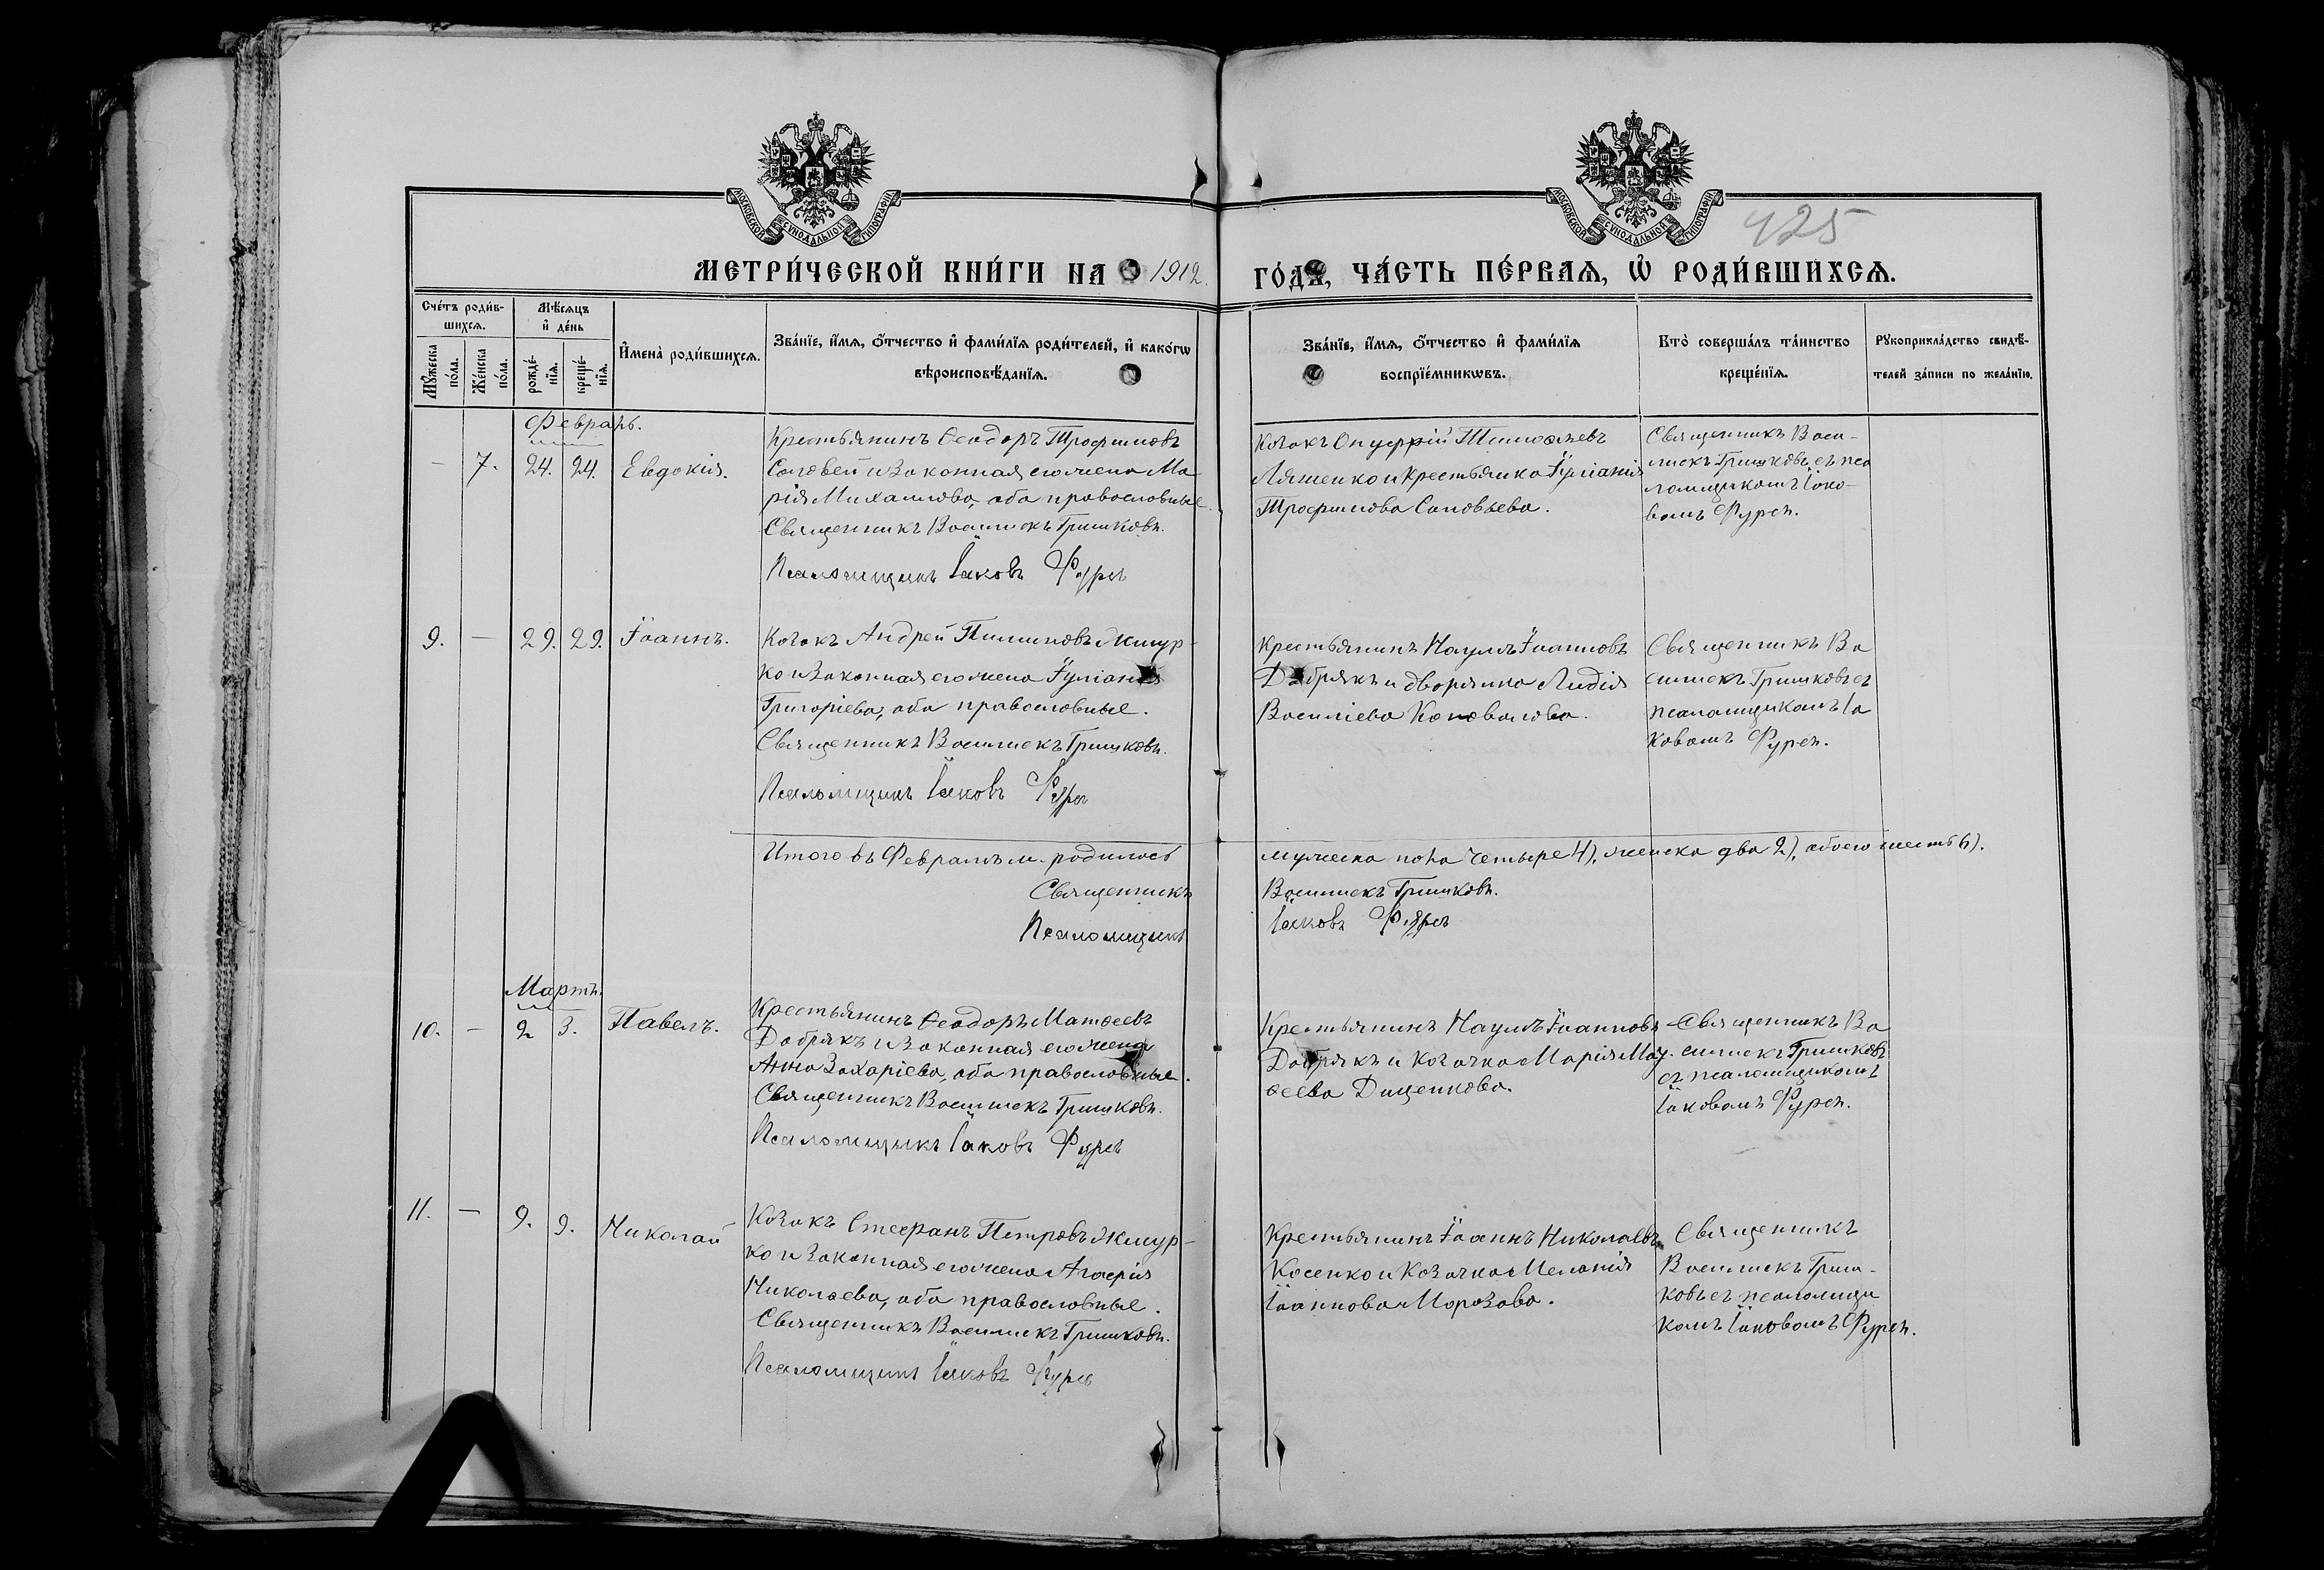 МОСКОВСКОЙ СѴНОДАЛЬНОЙ ТИПОГРАФІИ
МОСКОВСКОЙ СѴНОДАЛЬНОЙ ТИПОГРАФІИ
425
МЕТРИ́ЧЕСКОЙ КНИ́ГИ НА 1912.
ГО́ДЪ, ЧА́СТЬ ПЕ́РВАѦ, Ѡ҆ РОДИ́ВШИХСѦ.
Сче́тъ роди́в-
шихсѧ.
Мѣ́сѧцъ
и҆ де́нь
Мꙋ́жеска
по́ла.
Же́нска
по́ла.
рожде́-
нїѧ.
креще́-
нїѧ.
И҆мена̀ роди́вшихсѧ.
Зва́нїе, и҆́мѧ, ѻ҆́тчество и҆ фами́лїѧ роди́телей, и҆ како́гѡ
вѣроисповѣ́данїѧ.
Зва́нїе, и҆́мѧ, ѻ҆́тчество и҆ фами́лїѧ
воспрїе́мникѡвъ.
Кто̀ соверша́лъ та́инство
креще́нїѧ.
Рꙋкоприкла́дство свидѣ́-
телей за́писи по жела́нїю.
Февраль.
— 7. 24. 24. Евдокія.
Крестьянинъ Ѳеодоръ Трофимовъ
Соловей и законная его жена Ма
рія Михаилова, оба православные.
Священникъ Василискъ Гришковъ.
Псаломщикъ Іаковъ Фурса
Козакъ Онуфрій Тимоѳеевъ
Ляшенко и крестьянка Іуліанія
Трофимова Соловьева.
Священникъ Васи-
лискъ Гришковъ съ пса
ломщикомъ Іако-
вомъ Фурсъ.
9. — 29. 29. Іоаннъ.
Козакъ Андрей Пименовъ Жмур-
ко и законная его жена Іуліанія
Григоріева, оба православные.
Священникъ Василискъ Гришковъ.
Псаломщикъ Іаковъ Фурса
Крестьянинъ Наумъ Іоанновъ
Добрякъ и дворянка Лидія
Василіева Коновалова.
Священникъ Ва
силискъ Гришковъ съ
псаломщикомъ Іа
ковомъ Фурсъ.
Итого въ Февралѣ м. родилось
мужеска пола четыре 4), женска два 2), обоего шесть 6).
Священникъ
Василискъ Гришковъ.
Псаломщикъ
Іаковъ Фурса
Мартъ.
10. — 2 3. Павелъ.
Крестьянинъ Ѳеодоръ Матѳеевъ
Добрякъ и законная его жена
Анна Захаріева, оба православные.
Священникъ Василискъ Гришковъ.
Псаломщикъ Іаковъ Фурса
Крестьянинъ Наумъ Іоанновъ
Добрякъ и козачка Марія Мат-
ѳеева Диценкова.
Священникъ Ва
силискъ Гришковъ
съ псаломщикомъ
Іаковомъ Фурсъ.
11. — 9. 9. Николай
Козакъ Стефанъ Петровъ Жмур-
ко и законная его жена Агафія
Николаева, оба православные.
Священникъ Василискъ Гришковъ.
Псаломщикъ Іаковъ Фурса
Крестьянинъ Іоаннъ Николаевъ
Косенко и козачка Меланія
Іоаннова Морозова.
Священникъ
Василискъ Гриш-
ковъ съ псаломщи
комъ Іаковомъ Фурсъ.